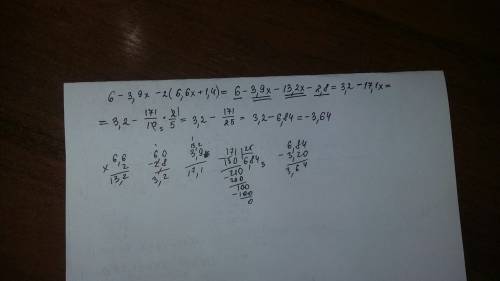 6 - 3,9x - 2(6,6x + 1,4) = 6 - 3,9x - 13,2x - 2,8 = 3,2 - 17,1x =
= 3,2 - 171/10 · 2/5 = 3,2 - 171/25 = 3,2 - 6,84 = -3,64
× 6,6
2
13,2
6,0
- 2,8
3,2
13,2
3,9
17,1
171 | 25
150 | 6,84
210
- 200
100
- 100
0
6,84
- 3,20
3,64